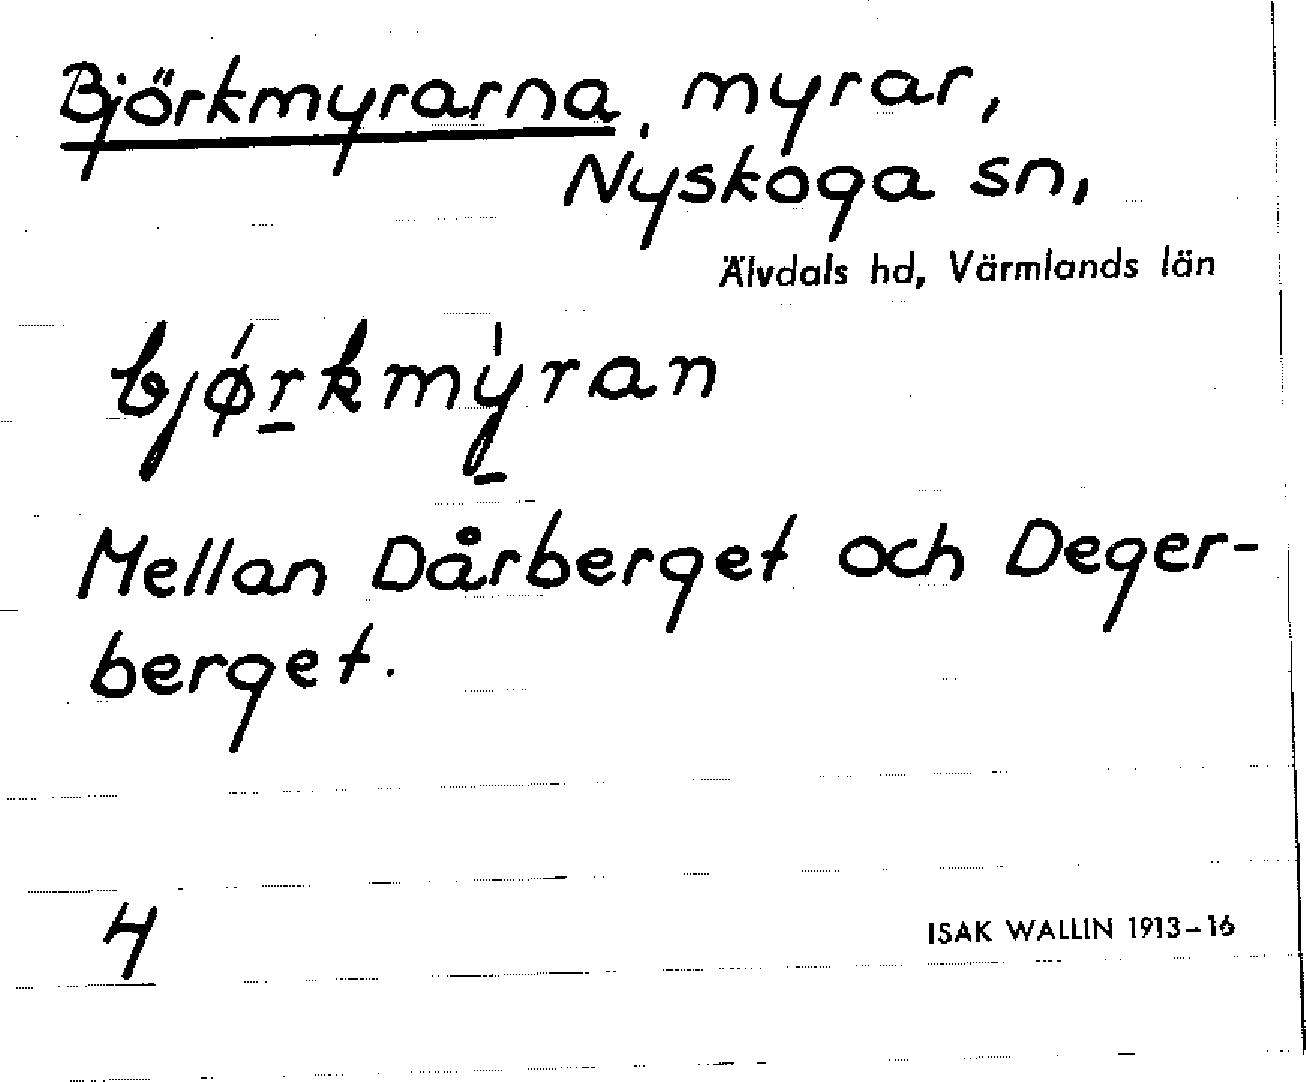 Björkmyrarna, myrar,
Nyskoga sn,
Älvdals hd, Värmlands län
bjǿr̲kmy̲̍ran
Mellan Dårberget och Deger-
berget.
4
ISAK WALLIN 1913–16